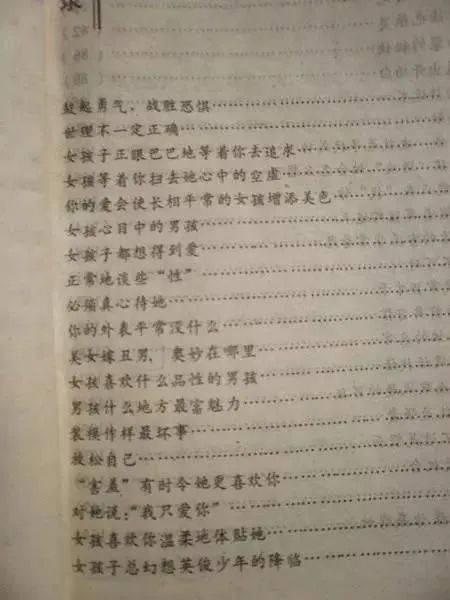 录
鼓起勇气，战胜恐惧……………………
世理不一定正确……………………
女孩子正眼巴巴地等着你去追求……………………
女孩等着你扫去她心中的空虚……………………
你的爱会使长相平常的女孩增添美色……………………
女孩心目中的男孩……………………
女孩子都想得到爱……………………
正常地谈些“性”……………………
必须真心待她……………………
你的外表平常没什么……………………
美女嫁丑男，奥妙在哪里……………………
女孩喜欢什么品性的男孩……………………
男孩什么地方最富魅力……………………
装模作样最坏事……………………
放松自己……………………
“害羞”有时令她更喜欢你……………………
对她说：“我只爱你”……………………
女孩喜欢你温柔地体贴她……………………
女孩子总幻想英俊少年的降临……………………